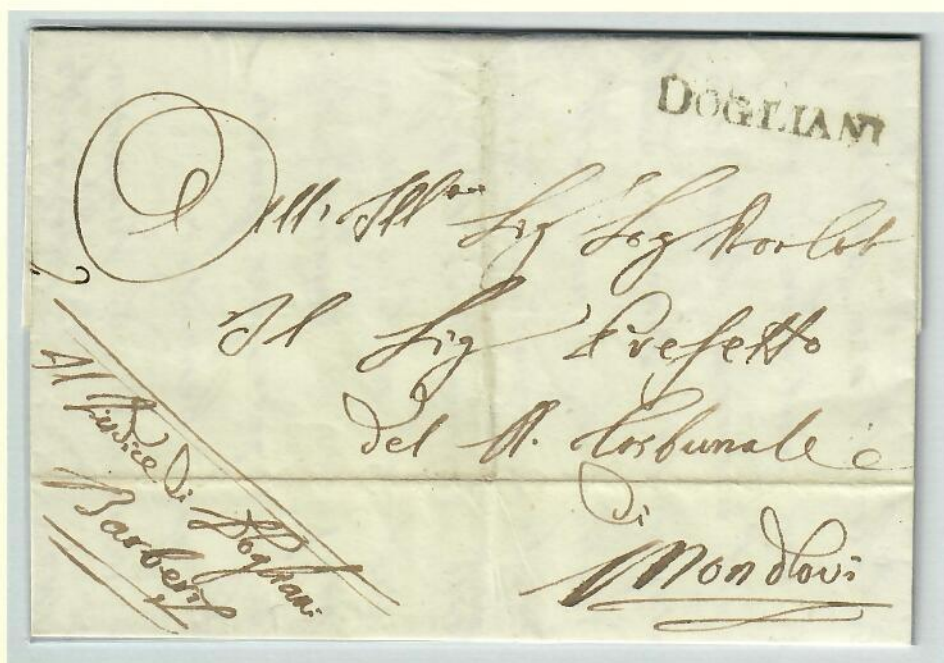 DOGLIANI
All' Ill.mo Sig Sig
Il Sig Prefetto
del R. Tribunale
di
Mondovi
Il Giudice di Dogliani
Barberis